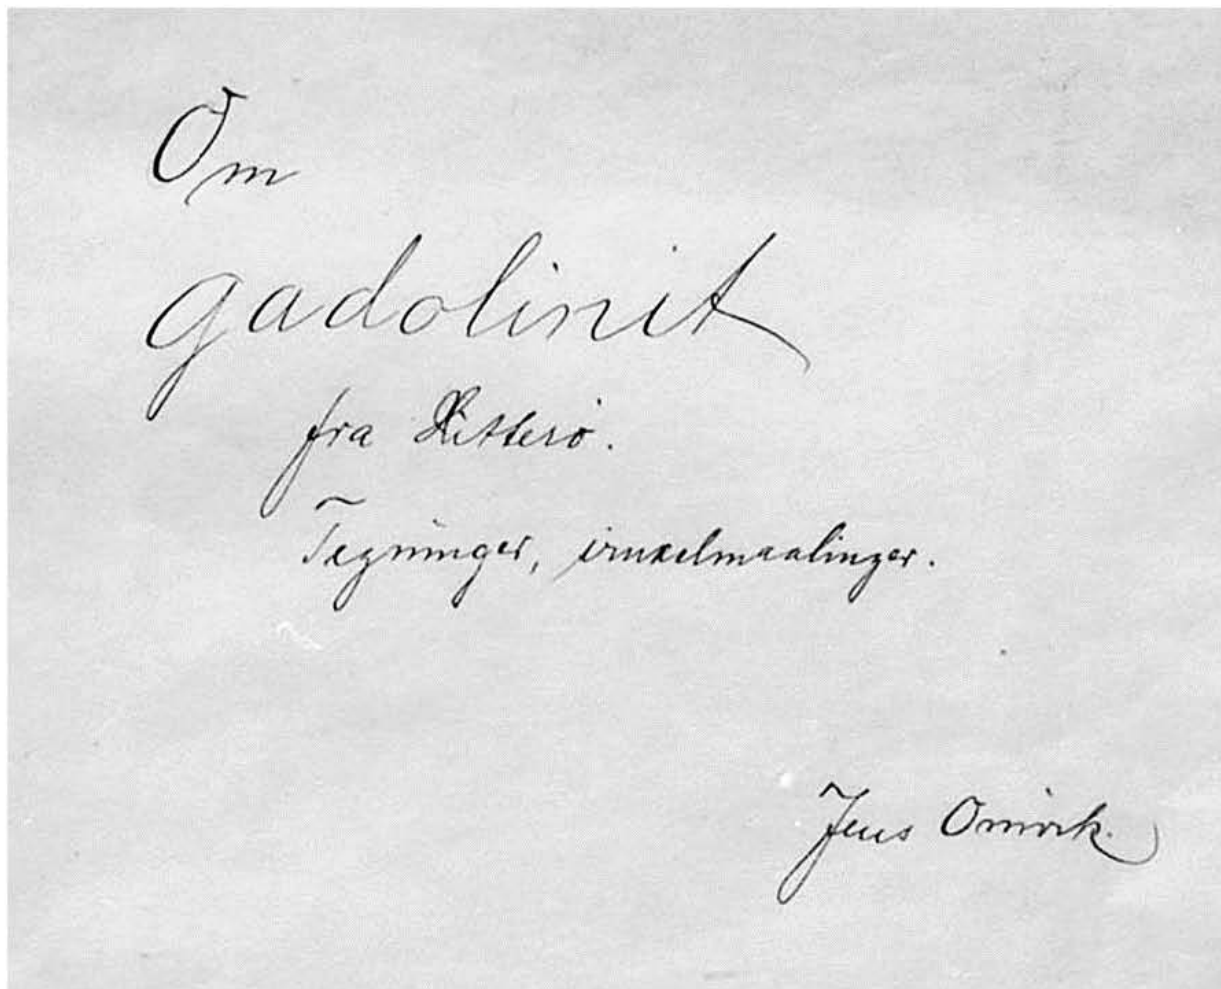 Om
gadolinit
fra Hitterø.
Tegninger, vinkelmaalinger.
Jens Omvik.